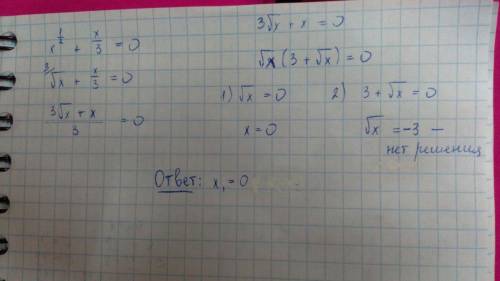 x^{1/2} + x/3 = 0
³/√x + x/3 = 0
(3√x + x)/3 = 0
3√x + x = 0
√x (3 + √x) = 0
1) √x = 0
x = 0
2) 3 + √x = 0
√x = -3 –
нет решения
Ответ: x₁ = 0